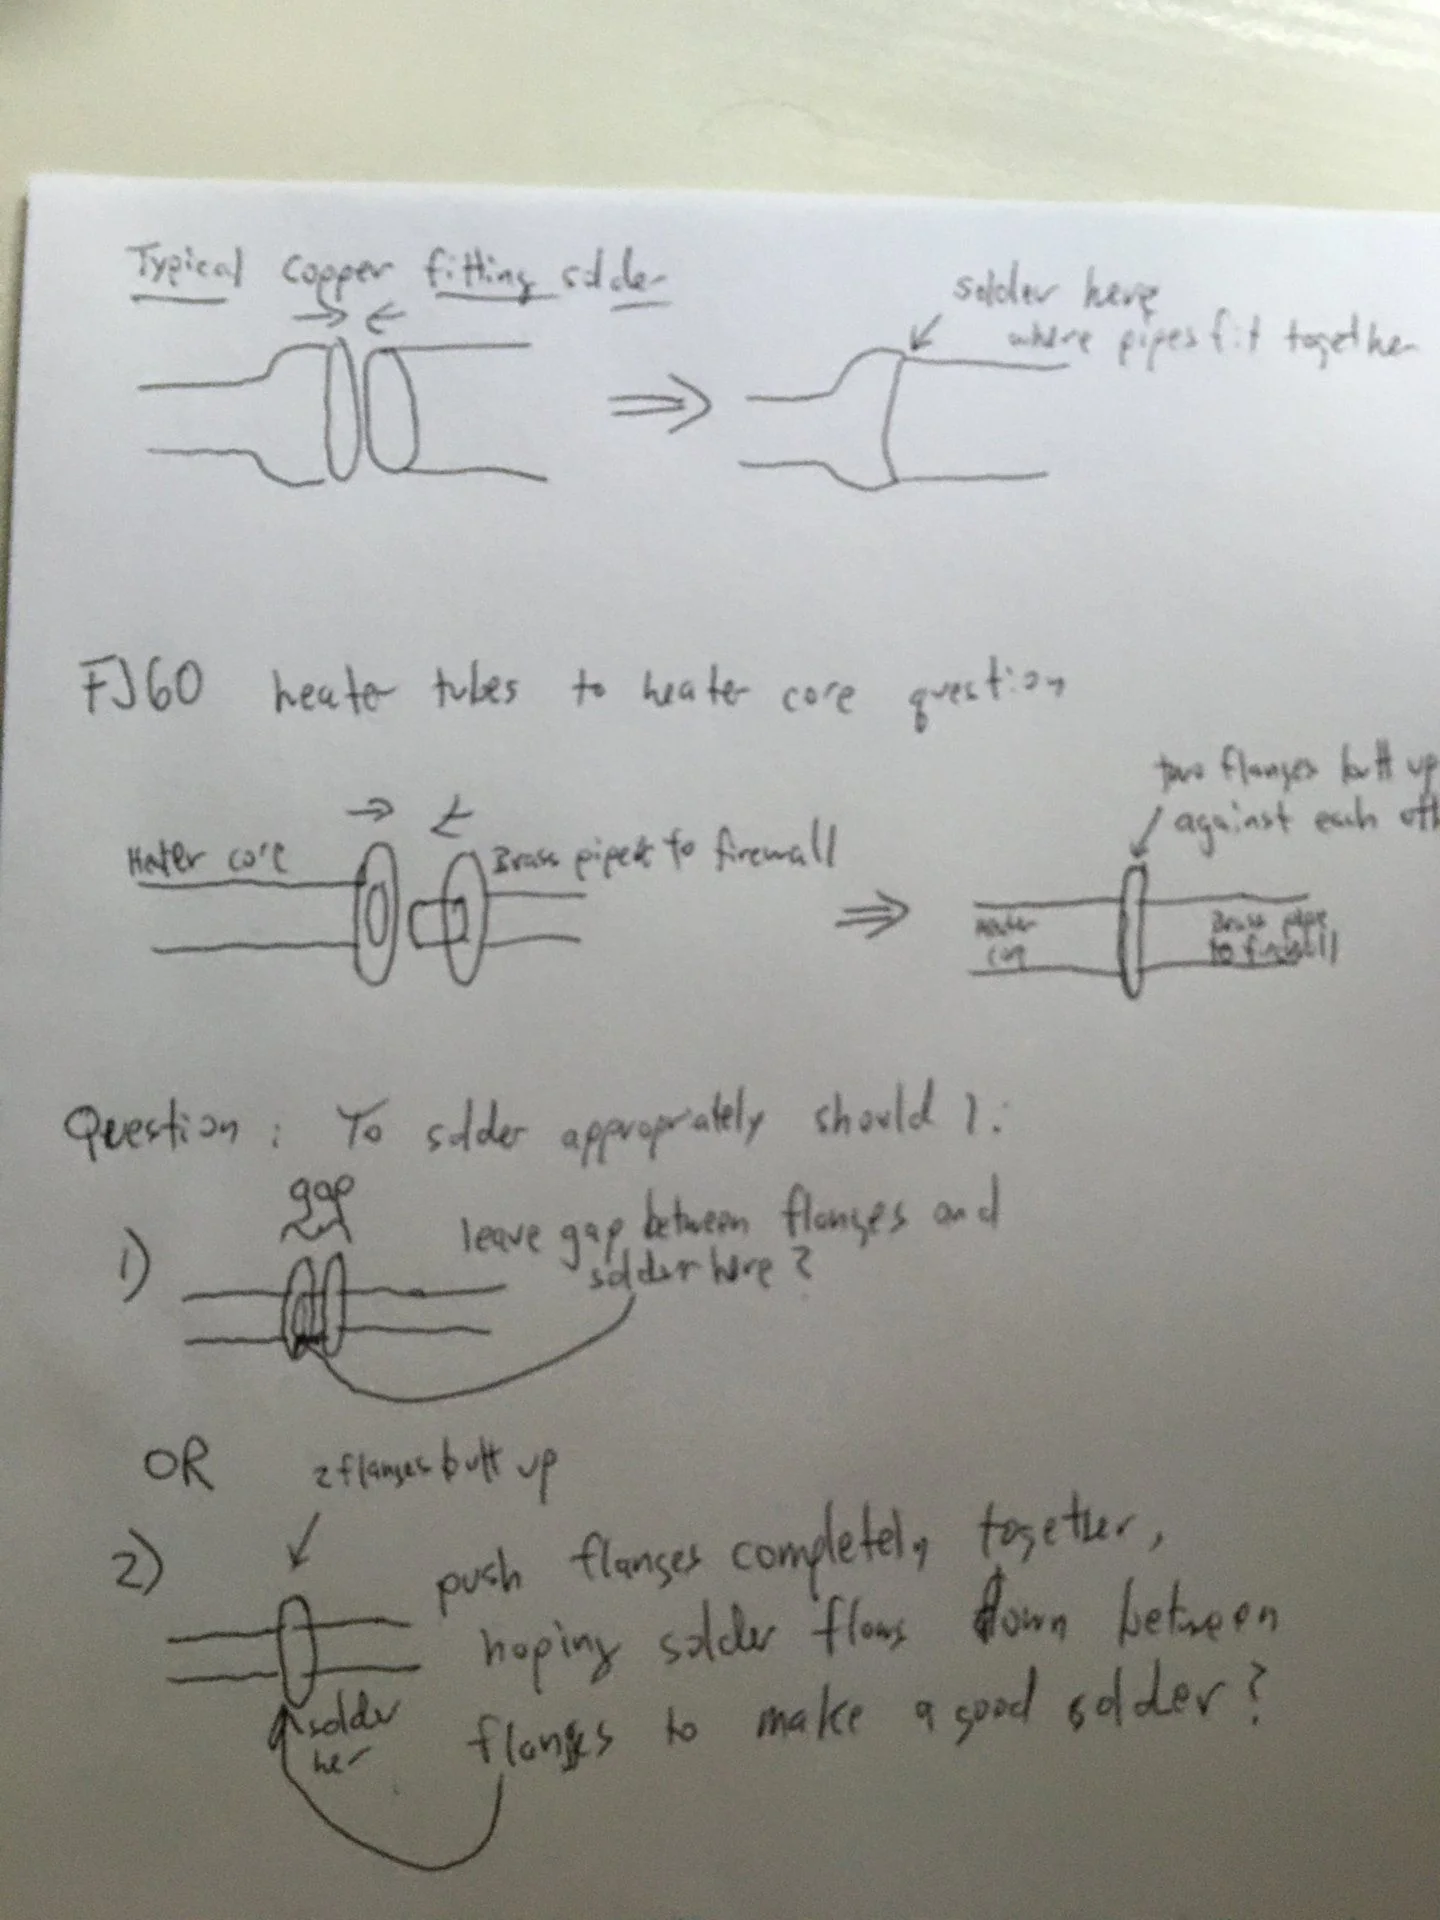 Typical copper fitting solder
solder here
where pipes fit together
FJ60 heater tubes to heater core question
two flanges butt up
against each oth
Heater core
Brass pipes to firewall
Heater
core
Brass pipe
to firewall
Question: To solder appropriately should I:
gap
1)
leave gap between flanges and
solder here?
OR
2 flanges butt up
2)
push flanges completely together,
hoping solder flows down between
flanges to make a good solder?
solder
her